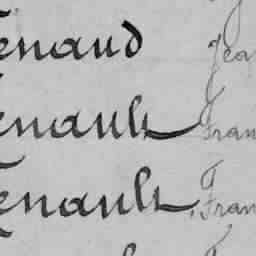 enaud Jea
enault, Fran
enault, Fran